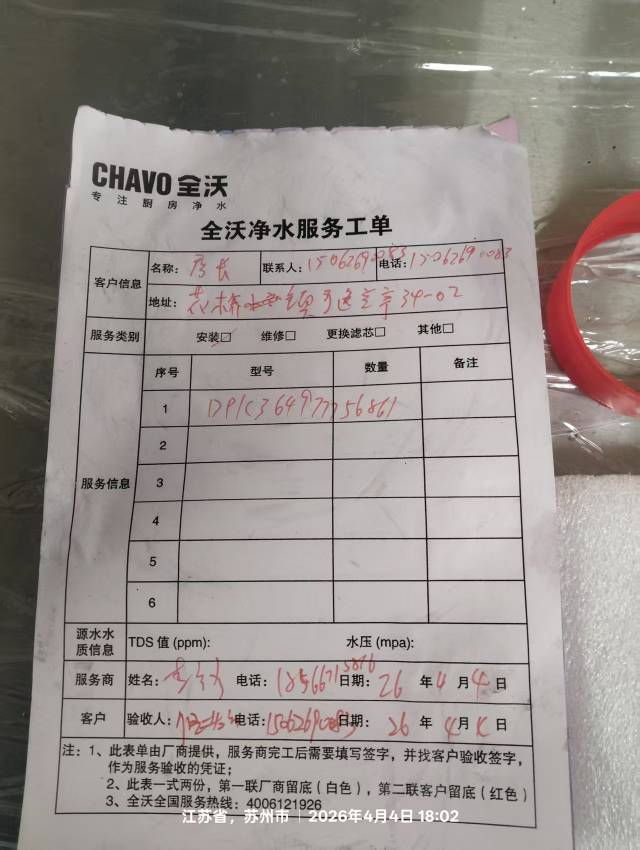 CHAVO 全沃
专注厨房净水
全沃净水服务工单
客户信息 名称: 联系人: 15062690083 电话: 15062690083
地址: 花桥 34-02
服务类别 安装☑ 维修□ 更换滤芯□ 其他□
服务信息 序号 型号 数量 备注
1 DPKC364977756861
2
3
4
5
6
源水水质信息 TDS 值 (ppm): 水压 (mpa):
服务商 姓名: 电话: 18566715816 日期: 26 年 4 月 4 日
客户 验收人: 电话: 15062690083 日期: 26 年 4 月 4 日
注: 1、此表单由厂商提供，服务商完工后需要填写签字，并找客户验收签字，
作为服务验收的凭证；
2、此表一式两份，第一联厂商留底（白色），第二联客户留底（红色）
3、全沃全国服务热线：4006121926
江苏省，苏州市 | 2026年4月4日 18:02